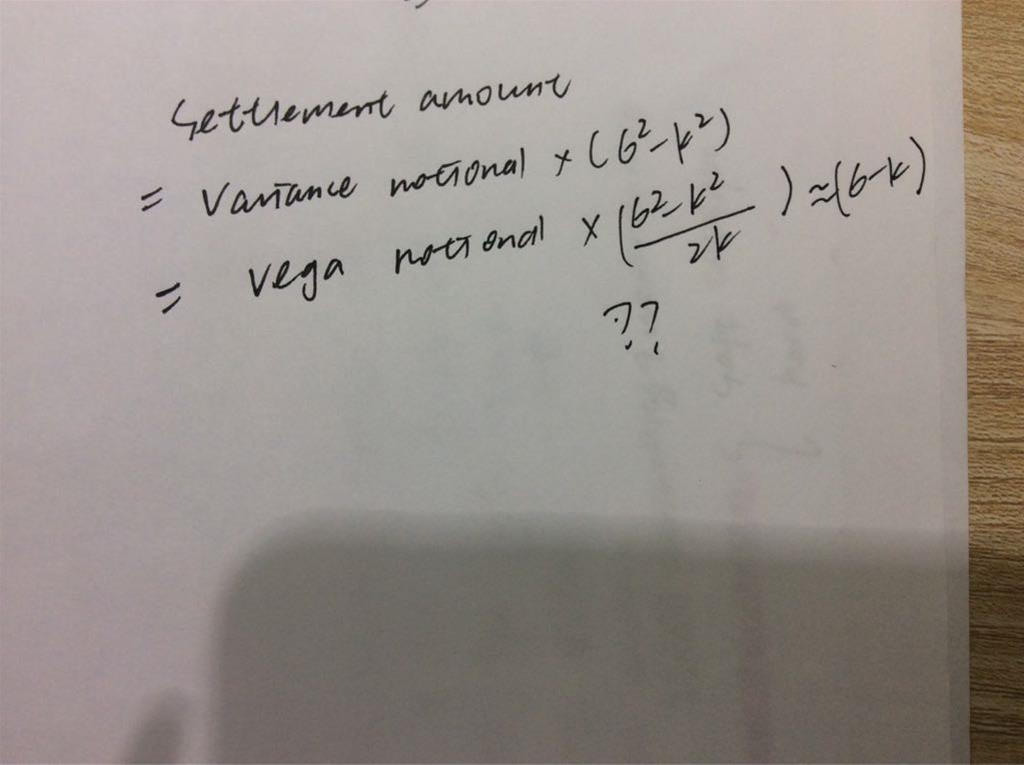 Settlement amount
= Variance notional × (σ²-k²)
= Vega notional × (σ²-k²/2k) ≈(σ-k)
??